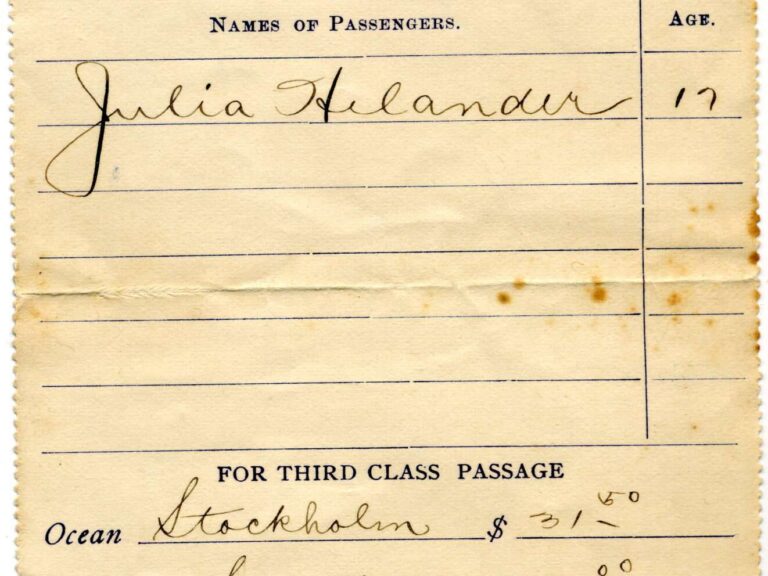 NAMES OF PASSENGERS. AGE.
Julia Helander 17
FOR THIRD CLASS PASSAGE
Ocean Stockholm $ 31 50
00